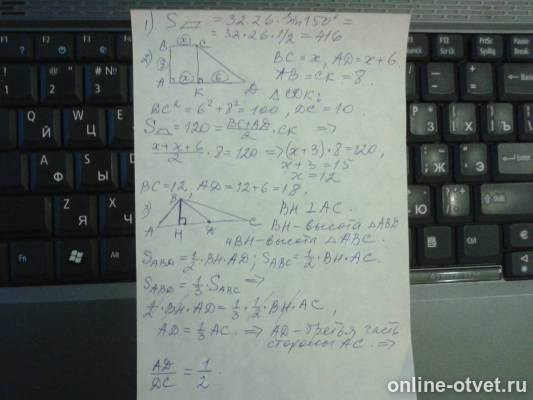 1) S▱ = 32·26·sin150° =
= 32·26·1/2 = 416
2) B x C
BC = x, AD = x+6.
8
AB = CK = 8.
A x K 6 D
△CDK:
DC² = 6² + 8² = 100, DC = 10
S = 120 = (BC+AD)/2 · CK ⇒
(x+x+6)/2 · 8 = 120 ⇒ (x+3)·8 = 120,
x+3 = 15
x = 12
BC = 12, AD = 12+6 = 18.
3) B
BH ⊥ AC.
A H D C
BH - высота △ABD
и BH - высота △ABC.
S_ABD = 1/2·BH·AD; S_ABC = 1/2·BH·AC.
S_ABD = 1/3·S_ABC ⇒
1/2·BH·AD = 1/3·1/2·BH·AC,
AD = 1/3 AC. ⇒ AD - третья часть
стороны AC. ⇒
AD/DC = 1/2.
online-otvet.ru